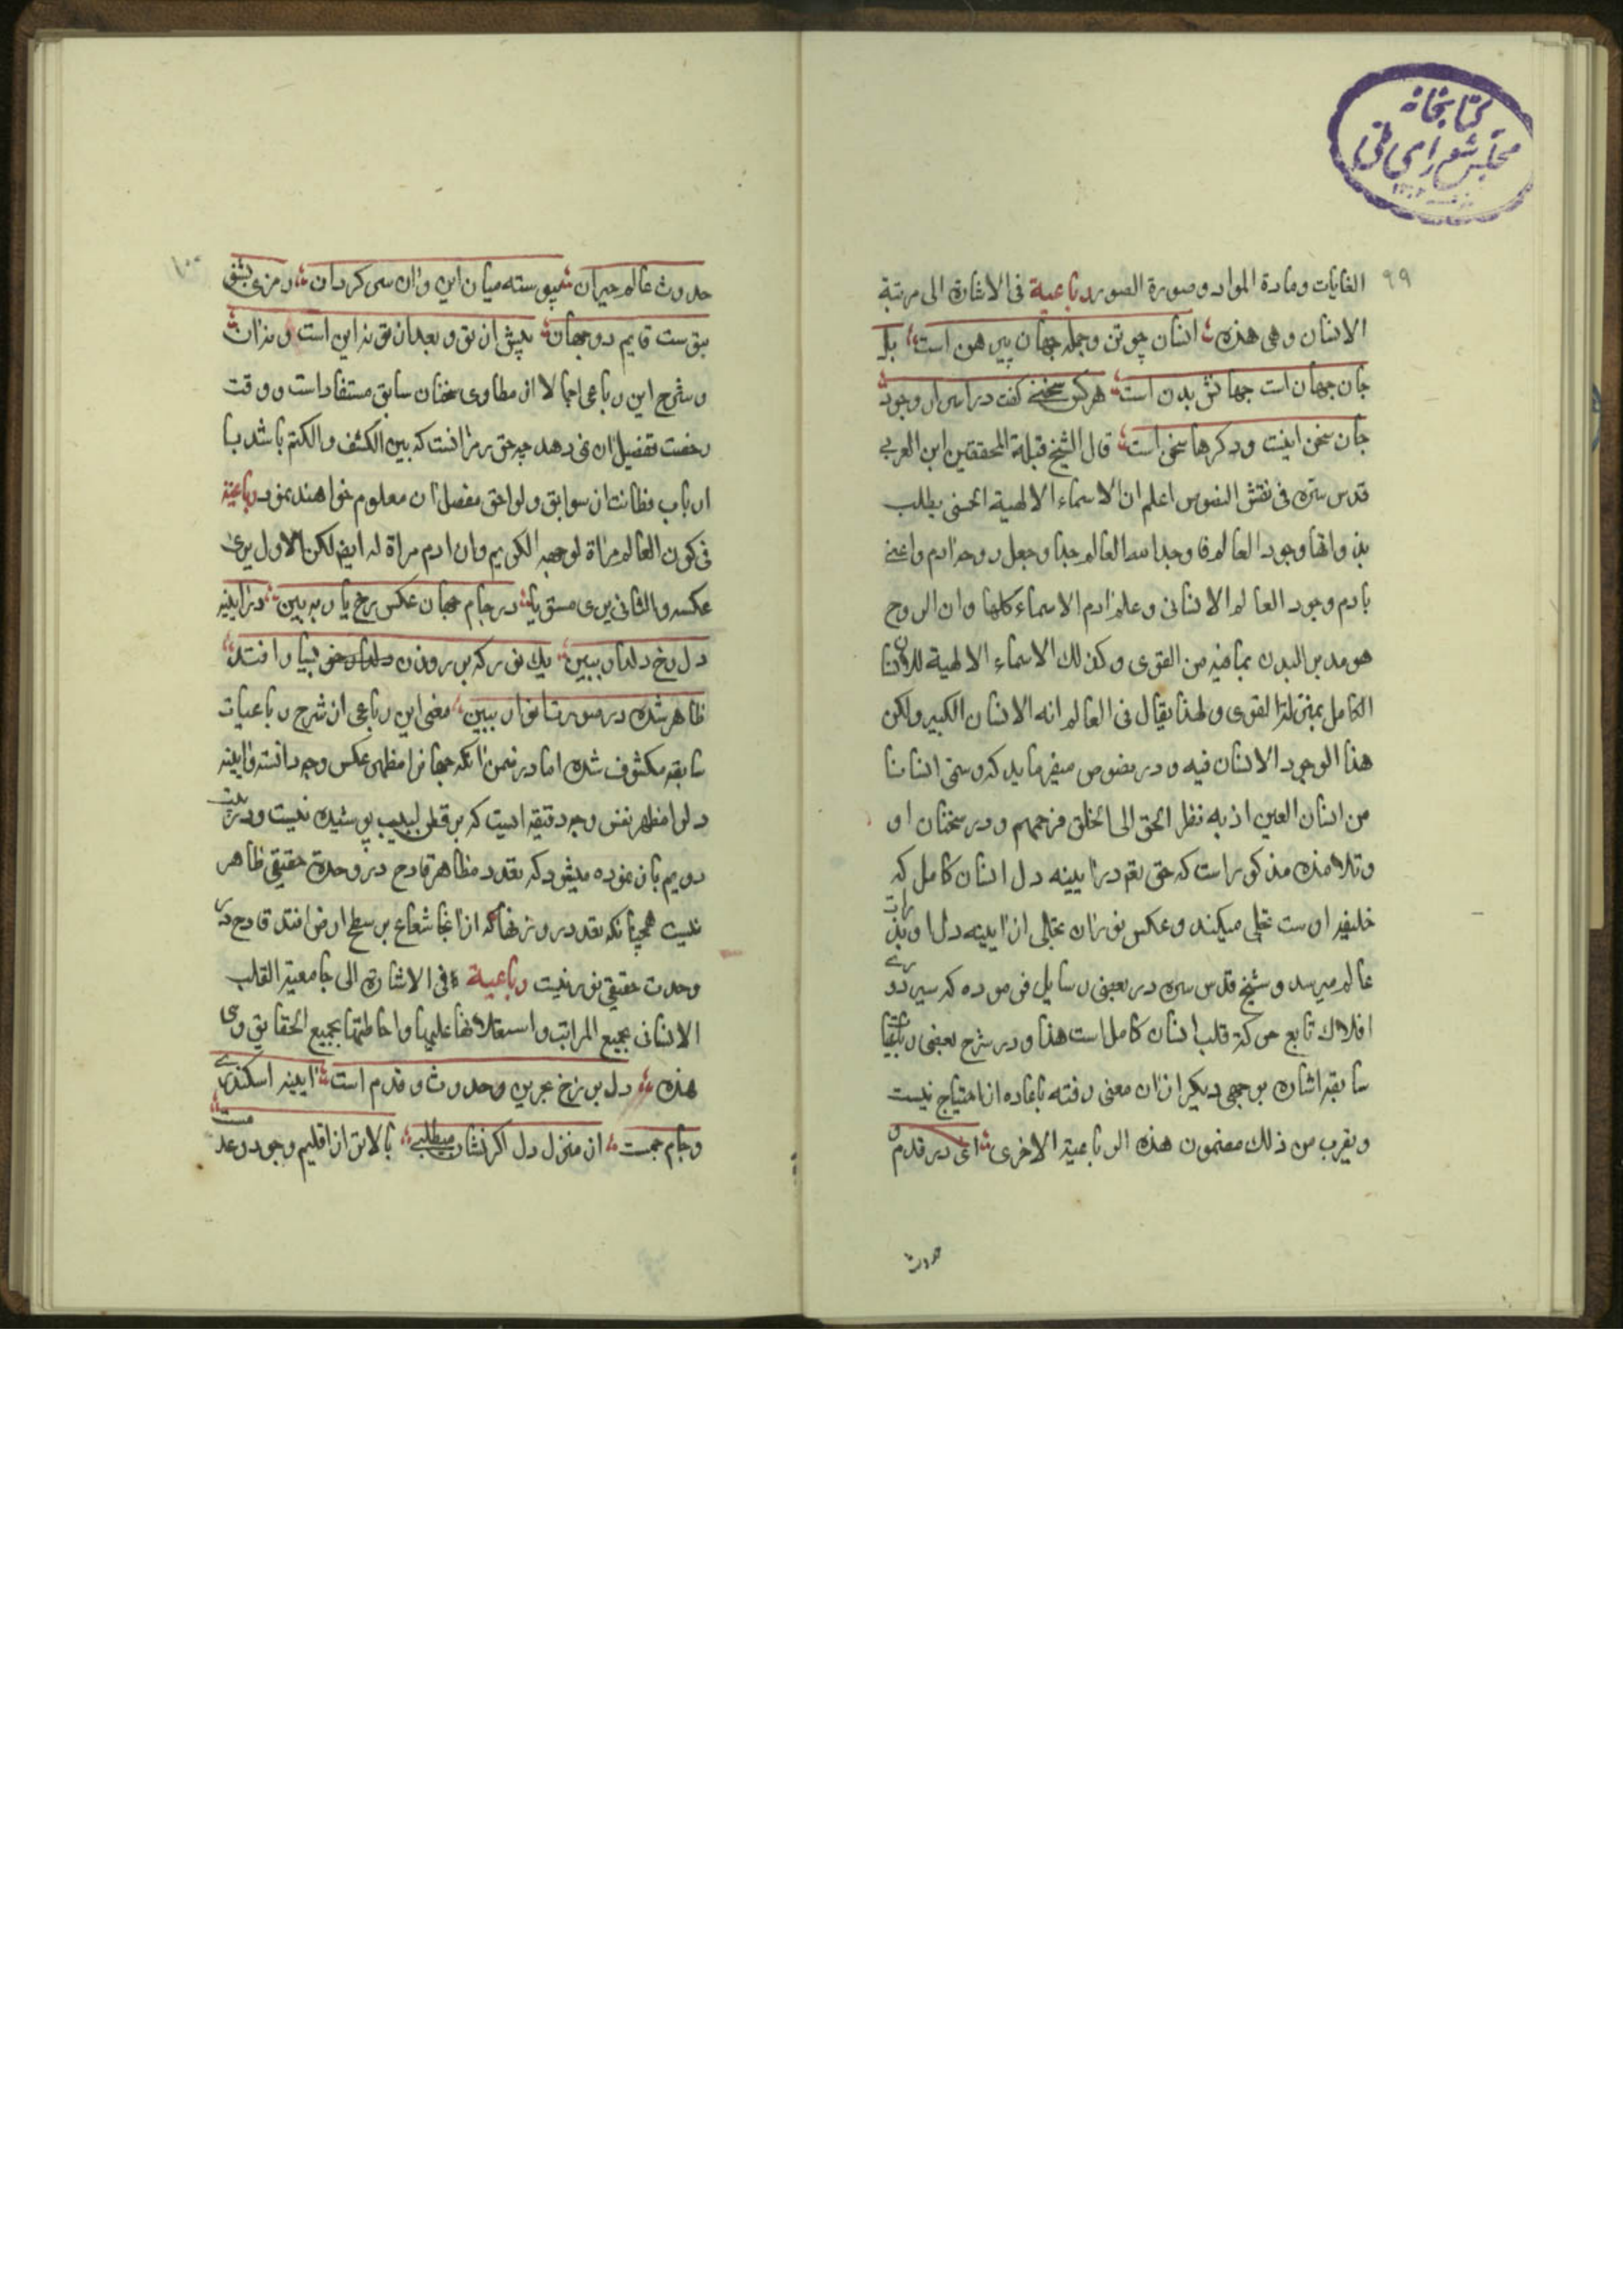 کتابخانه
مجلس شورای ملی
٩٩
الغایات و مادة المواد و صورة الصور رباعیة فی الاشارة الی مرتبة
الانسان و هی هذه انسان چو تن و جمله جهان پیرهن است بل
جان جهان است جهانش بدن است هرکس سخنے گفت در اسرار وجود
جان سخن اینست و دکرها سخن است قال الشیخ قبلة المحققین ابن العربی
قدس سره فی نقش الفصوص اعلم ان الاسماء الالهیة الحسنی یطلب
بذواتها وجود العالم فاوجد الله العالم جسدا و جعل روحه ادم و اعنی
بادم وجود العالم الانسانی و علم ادم الاسماء کلها و ان الروح
هو مدبر البدن بما فیه من القوی و کذلک الاسماء الالهیة للانسان
الکامل بمنزلة القوی و لهذا یقال فی العالم انه الانسان الکبیر ولکن
هذا لوجود الانسان فیه و در فصوص میفرماید که و سمی انسانا
من انسان العین اذ به نظر الحق الی الخلق فرحمهم و در سخنان او
و تلامذه مذکور است که حق تعم در ایینه دل انسان کامل که
خلیفه اوست تجلی میکند و عکس نوران تجلی از ایینه دل او بذرات
عالم میرسد و شیخ قدس سره در بعضی رسایل فرموده که سیر دوری
افلاک تابع حرکة قلب انسان کامل است هذا و در شرح بعضی رباعیات
سابقه اشاره بوجهی دیکر از ان معنی رفته باعاده ان احتیاج نیست
و یقرب من ذلک مضمون هذه الرباعیة الاخری ای در قدم و
حدوث
١٠٠
حدوث عالم حیران پیوسته میان این و ان سرکردان رمزی بشنو
بتوست قایم دو جهان پیش از تو و بعد از تو نه این است و نه ان
و شرح این رباعی اجمالا از مطاوی سخنان سابق مستفاد است و وقت
رخصت تفصیل ان نمی دهد چه حق رمز انست که بین الکشف و الکتم باشد بسا
ارباب فطانت از سوابق و لواحق مفصل ان معلوم خواهند نمود رباعیة
فی کون العالم مراة لوجهه الکریم و ان ادم مراة له ایضا لکن الاول یری
عکسه و الثانی یری مستویا در جام جهان عکس رخ یار به بین در ایینه
دل رخ دلدار ببین یک نور که بر روزن بسیار افتد
ظاهر شده در صورت انوار ببین معنی این رباعی از شرح رباعیات
سابقه مکشوف شده اما در ضمن انکه جهانرا مظهر عکس وجه دانسته و ایینه
دلرا مظهر نفس وجه دقیقه ایست که بر فطن لبیب پوشیده نیست و در بیت
دویم باز نموده میشود که تعدد مظاهر قادح در وحدة حقیقی ظاهر
نیست همچنانکه تعدد روزنها که از انجا شعاع بر سطح ارض افتد قادح در
وحدت حقیقی نور نیست رباعیة فی الاشارة الی جامعیة القلب
الانسانی بجمیع المراتب و استعلائها علیها و احاطتها بجمیع الحقایق و هی
هذه دل برزخ بحرین حدوث و قدم است ایینه اسکندری
و جام جمست از منزل دل اکر نشان میطلبے بالاتر از اقلیم وجود و عدمست